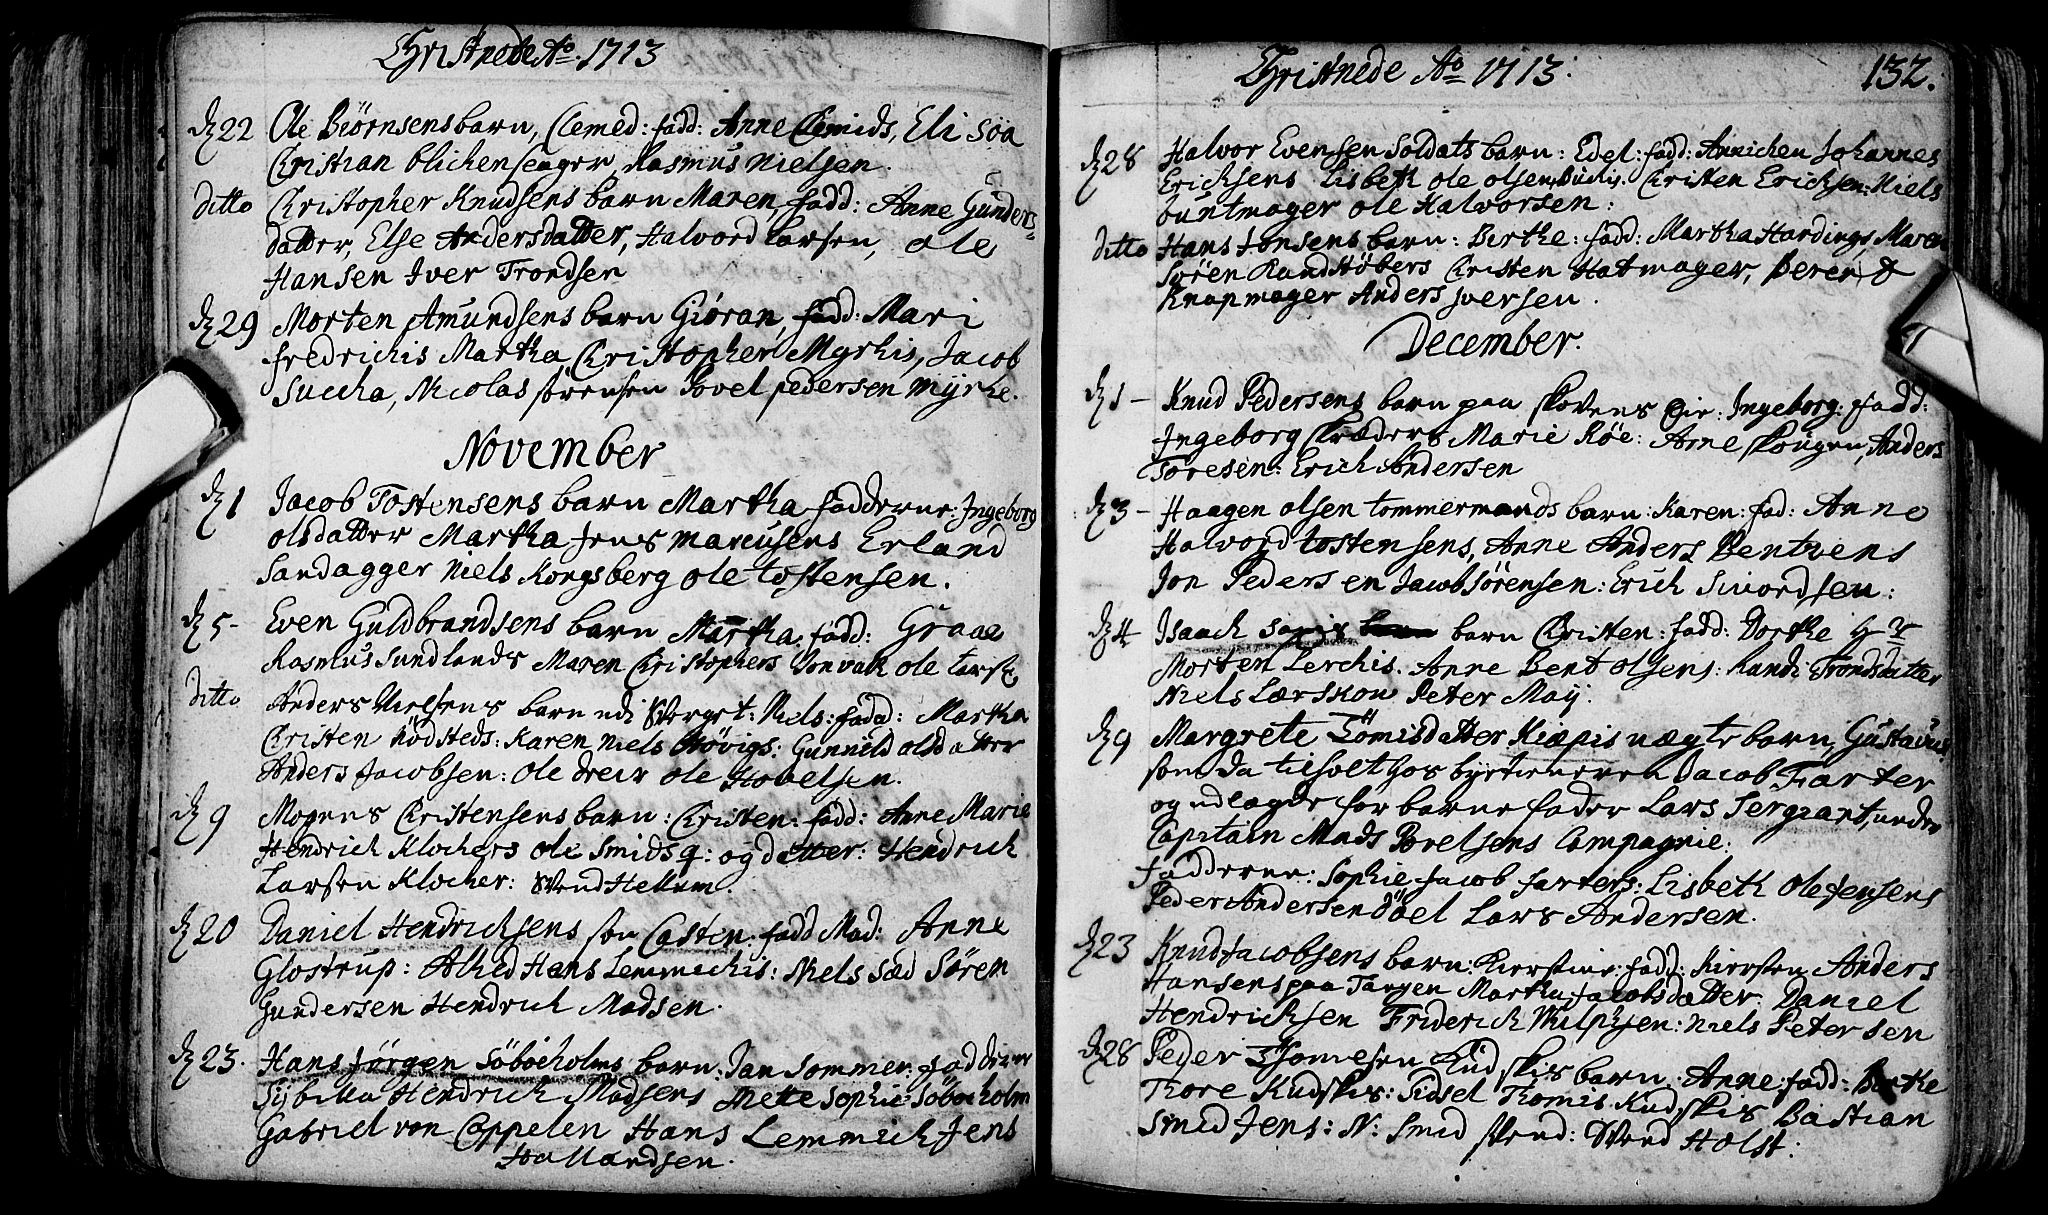 Christnede Ao. 1713
d 22 Ole Biörnsens barn, Clemed: fadd: Anne Clemids, Eli Söa
Christian blickenslager, Rasmus Nielsen.
ditto Christopher Knudsens barn Maren, fadd: Anne Gunders-
datter, Else Andersdatter, Halvord Larsen, Ole
Hansen Iver Trondsen
d 29 Morten Amundsens barn Giöran, fadd: Mari
fredrichis Martha Christopher Myrhis, Jacob
Succha, Nicolas sörensen Povel pedersen Myrhe.
November
d 1 Jacob Tostensens barn Martha fadderne: Ingeborg
olsdatter Martha Jens Marcusens Erland
Sandagger Niels Kongsberg ole tostensen.
d 5- Even Guldbrandsens barn Martha, fadd: Graae
Rasmus Sundlands Maren Christophers ole
ditto Anders Nielsens barn Niels: fadd: Martha
Christen Rödsteds: Karen Niels Stövigs: Gunnild olsdatter
Anders Jacobsen: ole dreir ole Hovelsen.
d 9 Mogens Christensens barn: Christen: fadd: Anne Marie
Hendrich Klochers ole Smids q: og datter: Hendrich
Larsen Klocher: Svend Hellum.
d 20 Daniel Hendrichsens sön Casten: fadd Mad: Anne
Glostrup: Alhed Hans Lemmichis: Niels Sæd Sören
Gundersen Hendrich Madsen.
d 23. Hans Jörgen Söböeholms barn: Jan Sommer: fadderne
Sybilla Hendrich Madsens Mette Sophie Söböeholm
Gabriel von Cappelen Hans Lemmich Jens
Hallvardsen.
Christnede Ao 1713. 132.
d 28 Halvor Evensen Soldats barn: Edel: fadd: Annichen Johannes
Ericksens Lisbeth ole olsen Christen Ericksen: Niels
buntmager ole Halvorsen:
ditto Hans Jonsens barn: Birthe: fadd: Martha Hardings, Maren
Sören Randstöbers Christen Hatmager, Berent
Knapmager Anders Iversen.
December.
d 1 - Knud Pedersens barn paa Skovens Eie: Ingeborg: fadd:
Ingeborg Skreders Marie Röe: Arne Skougen, Anders
Toresen: Erich Andersen
d 3 - Haagen olsen tommermands barn: Karen: fad: Anne
Halvord tostensens, Anne Anders Bentzens
Jon Pedersen Jacob Sörensen: Erich Sivordsen:
d 4 Isaach barn Christen: fadd: Dorthe Hr
Morten Lerchis. Anne Bent olsens: Randi Trondsdatter
Niels Larsson Peter May:
d 9 Margrete Tömisdatter Kiepis uægte barn, Gustavus
som da tilholt hos byetieneren Jacob Farter
og udlagde for barne fader Lars Sergiant, under
Capitain Mads Povelsens Compagnie:
fadderne: Sophie Jacob farters: Lisbeth Ole Jensens
Peder Andersen Döel Lars Andersen.
d 23 Knud Jacobsens barn: Kierstine: fadd: Kiersten Anders
Hansens paa Tangen Martha Jacobsdatter. Daniel
Hendrichsen Friderich Niels Petersen
d 28 Peder Thomesen Kudskis barn: Anne: fadd: Birthe
Thore Kudskis: Sidsel Thomis Kudskis Bastian
Smid Jens: N: Smid svend: Svend Holst: